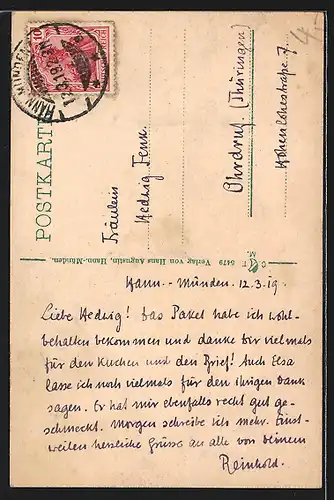 HANN. MÜNDEN
12.3.19. 2-3N
10
4.-
POSTKARTE
Fräulein
Hedwig Fenk.
Ohrdruf. (Thüringen)
Hohenlohestraße 7.
M. 5479 Verlag von Hans Augustin, Hann.-Münden.
Hann.-Münden. 12.3.19.
Liebe Hedwig! Das Paket habe ich wohl-
behalten bekommen und danke dir vielmals
für den Kuchen und den Brief! Auch Elsa
lasse ich noch vielmals für den ihrigen Dank
sagen. Er hat mir ebenfalls recht gut ge-
schmeckt. Morgen schreibe ich mehr. Einst-
weilen herzliche Grüsse an alle von deinem
Reinhold.